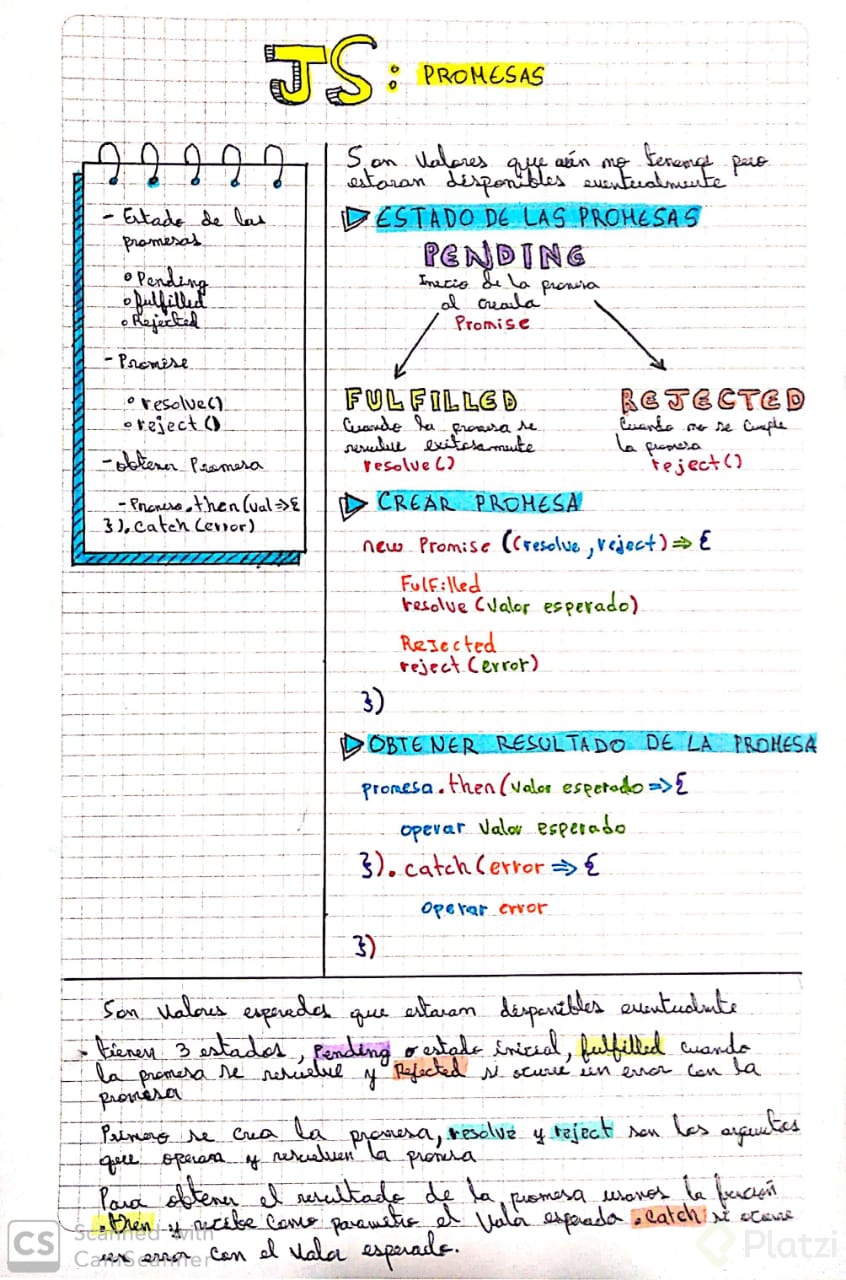 JS: PROMESAS
- Estado de las
promesas
Pending
fulfilled
Rejected
- Promise
resolve()
reject()
- obtener Promesa
- Promise.then(val=>{
}).catch(error)
Son valores que aún no tenemos pero
estaran disponibles eventualmente
ESTADO DE LAS PROMESAS
PENDING
Inicio de la promesa
al crearla
Promise
FULFILLED
Cuando la promesa se
resuelve exitosamente
resolve()
REJECTED
Cuando no se cumple
la promesa
reject()
CREAR PROMESA
new Promise ((resolve, reject) => {
FulFilled
resolve (valor esperado)
Rejected
reject (error)
})
OBTENER RESULTADO DE LA PROMESA
promesa.then(valor esperado => {
operar valor esperado
}).catch(error => {
operar error
})
Son valores esperados que estaran disponibles eventualmente
tienen 3 estados, Pending o estado inicial, fulfilled cuando
la promesa se resuelve y Rejected si ocurre un error con la
promesa
Primero se crea la promesa, resolve y reject son los argumentos
que operara y resuelven la promesa
Para obtener el resultado de la promesa usamos la función
.then y recibe como parametro el valor esperado .catch si ocurre
un error con el valor esperado.
CS Scanned with
CamScanner
Platzi